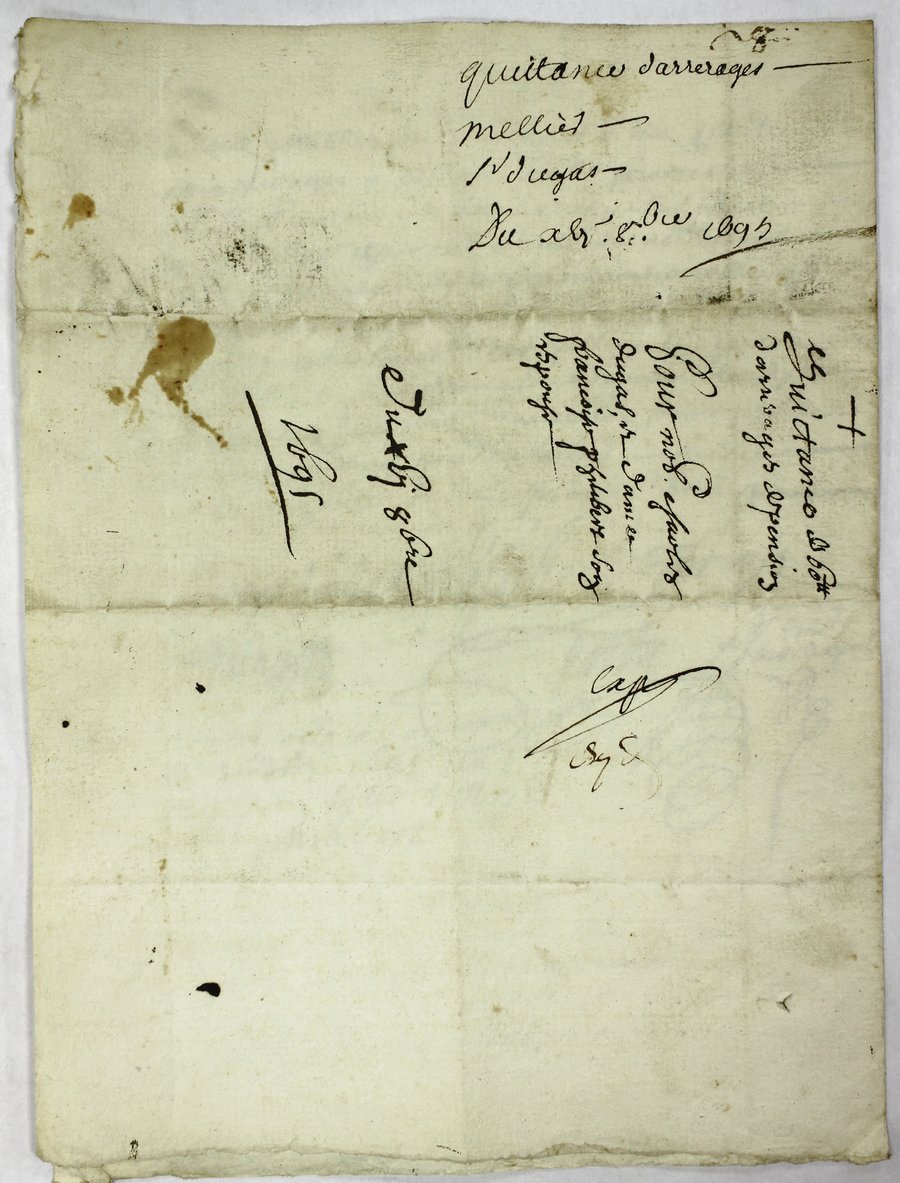 quittance darrerages
mellier
Sr dugas
Du xbj. 8.bre 1695
+
Quictance de
darrerages de pension
Pour nob. charles
dugas, et damelle
françoise philibert son
espouse
Du xbj 8bre
1695